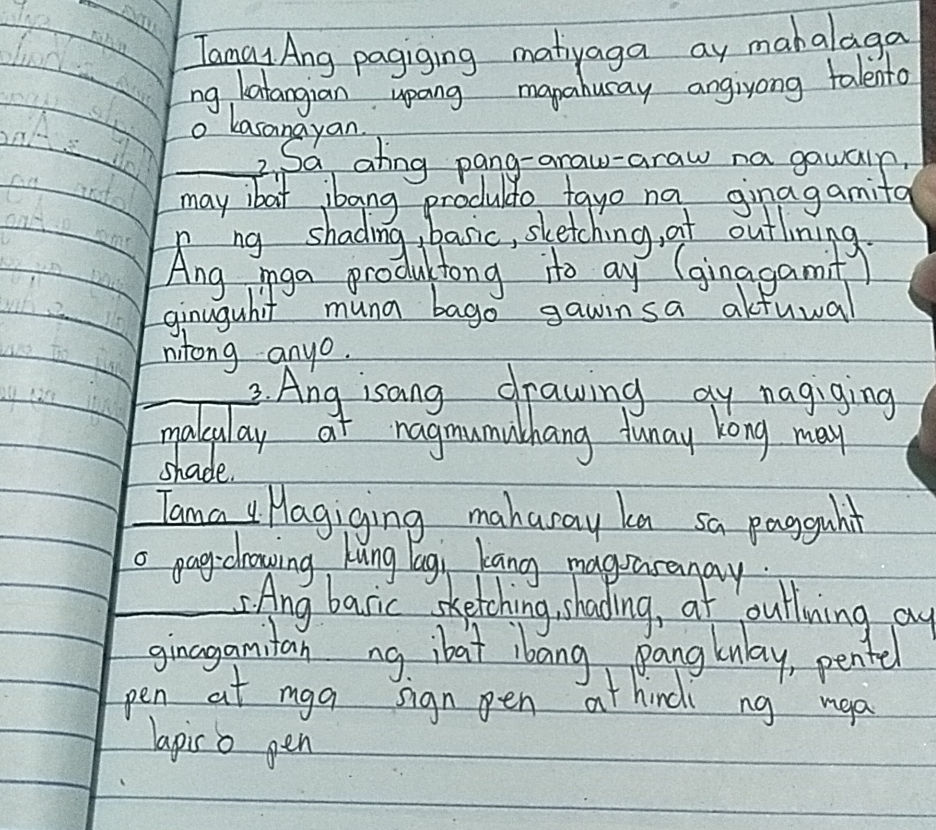 Tama 1. Ang pagiging matiyaga ay mahalaga
ng katangian upang mapahusay angiyong talento
o kasanayan.
2. Sa ating pang-araw-araw na gawain,
may ibat ibang produkto tayo na ginagamita
n ng shading, basic, sketching, at outlining.
Ang mga produktong ito ay (ginagamit)
ginuguhit muna bago gawinsa aktuwal
nitong anyo.
3. Ang isang drawing ay nagiging
makulay at nagmumukhang tunay kong may
shade.
Tama 4. Magiging mahusay ka sa pagguhit
o pag-drawing kung lagi kang magsasanay.
5. Ang basic sketching, shading, at outlining ay
ginagamitan ng ibat ibang pangkulay, pentel
pen at mga sign pen at hindi ng mga
lapis o pen